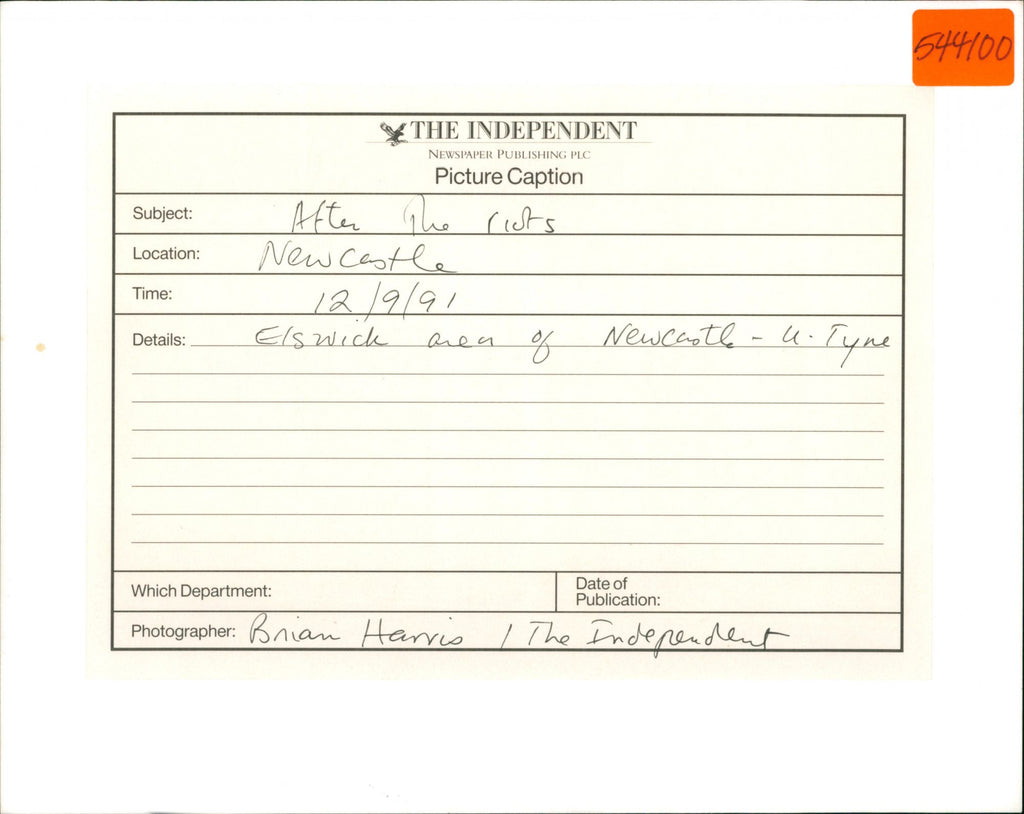 544100
THE INDEPENDENT
NEWSPAPER PUBLISHING PLC
Picture Caption
Subject: After The riots
Location: Newcastle
Time: 12/9/91
Details: Elswick area of Newcastle - U. Tyne
Which Department:
Date of
Publication:
Photographer: Brian Harris / The Independent